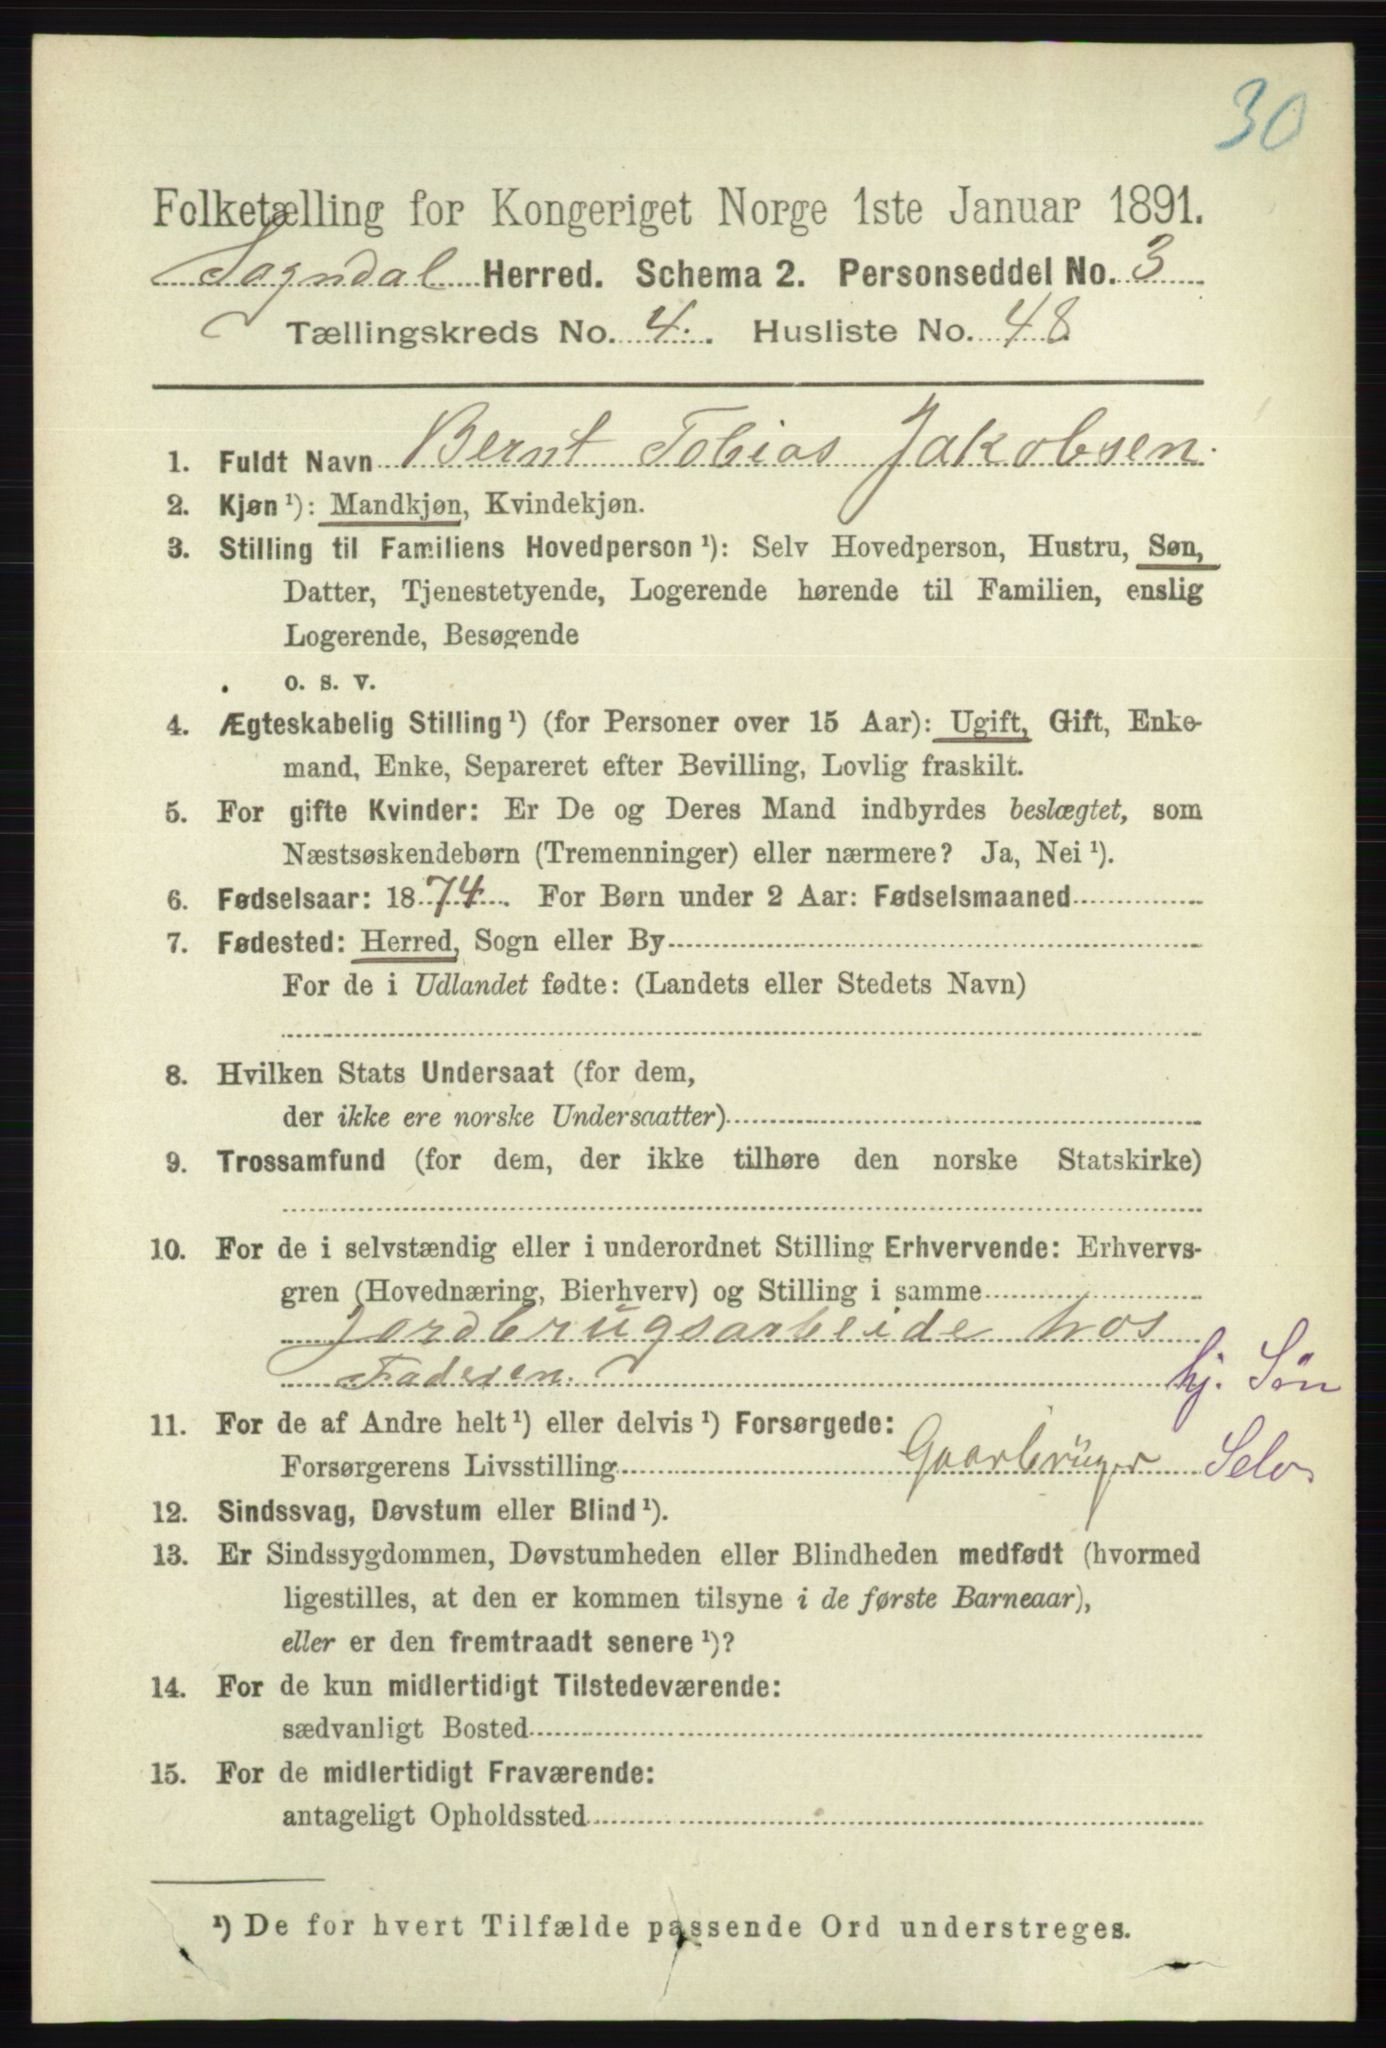 30
Folketælling for Kongeriget Norge 1ste Januar 1891.
Sogndal Herred. Schema 2. Personseddel No. 3
Tællingskreds No. 4. Husliste No. 48
1. Fuldt Navn Bernt Tobias Jakobsen.
2. Kjøn ¹): Mandkjøn, Kvindekjøn.
3. Stilling til Familiens Hovedperson ¹): Selv Hovedperson, Hustru, Søn,
Datter, Tjenestetyende, Logerende hørende til Familien, enslig
Logerende, Besøgende
o. s. v.
4. Ægteskabelig Stilling ¹) (for Personer over 15 Aar): Ugift, Gift, Enke-
mand, Enke, Separeret efter Bevilling, Lovlig fraskilt.
5. For gifte Kvinder: Er De og Deres Mand indbyrdes beslægtet, som
Næstsøskendebørn (Tremenninger) eller nærmere? Ja, Nei ¹).
6. Fødselsaar: 1874. For Børn under 2 Aar: Fødselsmaaned
7. Fødested: Herred, Sogn eller By
For de i Udlandet fødte: (Landets eller Stedets Navn)
8. Hvilken Stats Undersaat (for dem,
der ikke ere norske Undersaatter)
9. Trossamfund (for dem, der ikke tilhøre den norske Statskirke)
10. For de i selvstændig eller i underordnet Stilling Erhvervende: Erhvervs-
gren (Hovednæring, Bierhverv) og Stilling i samme
Jordbrugsarbeide hos
Faderen. hj. Sön
11. For de af Andre helt ¹) eller delvis ¹) Forsørgede:
Forsørgerens Livsstilling Gaarbrüger Selv
12. Sindssvag, Døvstum eller Blind ¹).
13. Er Sindssygdommen, Døvstumheden eller Blindheden medfødt (hvormed
ligestilles, at den er kommen tilsyne i de første Barneaar),
eller er den fremtraadt senere ¹)?
14. For de kun midlertidigt Tilstedeværende:
sædvanligt Bosted
15. For de midlertidigt Fraværende:
antageligt Opholdssted
¹) De for hvert Tilfælde passende Ord understreges.